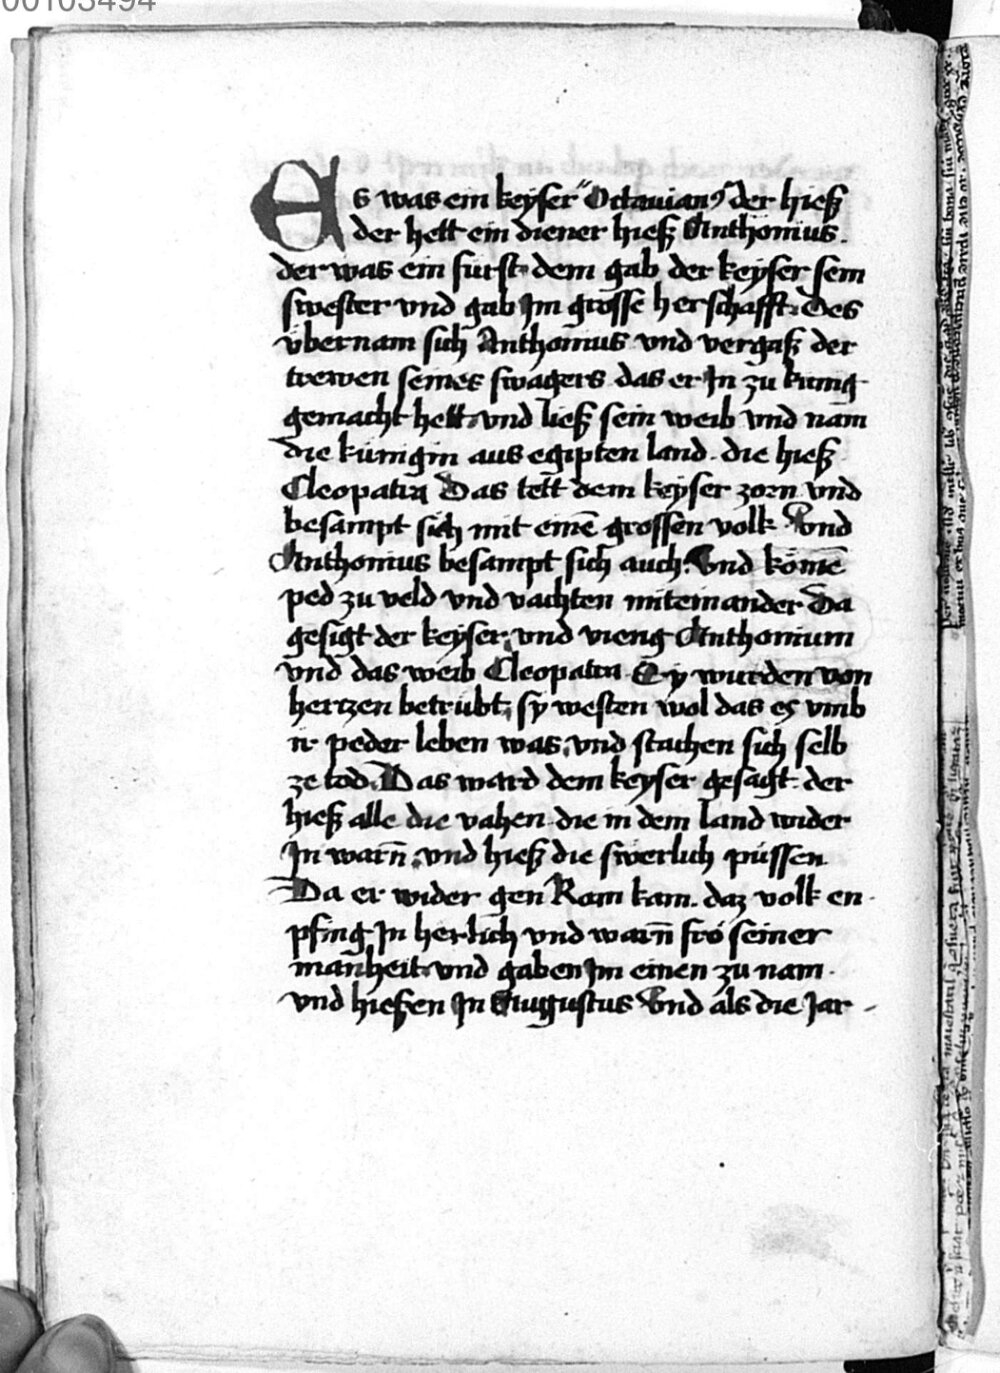 00103494
Es was ein keyser Octauianꝰ der hieß
der hett ein diener hieß Anthonius.
der was ein furst· dem gab der keyser sein
swester vnd gab Im grosse herschafft· Des
vbernam sich Anthonius vnd vergaß der
trewen seines swagers das er In zu kunig
gemacht hett· vnd ließ sein weib vnd nam
die künigin aus egipten land· die hieß
Cleopatra Das tett dem keyser zorn vnd
besampt sich mit einē grossen volk Vnd
Anthonius besampt sich auch· Vnd komē
ped zu veld vnd vachten miteinander Da
gesigt der keyser· vnd vieng Anthonium
vnd das weib Cleopatra Sy wurden von
hertzen betrübt· sy westen wol das es vmb
ir peder leben was· vnd stachen sich selb
ze tod· Das ward dem keyser gesagt· der
hieß alle die vahen die in dem land wider
In warn̄· vnd hieß die swerlich püssen
Da er wider gen Rom kam· daz volk en
pfing In herlich vnd warn̄ fro seiner
manheit· vnd gaben Im einen zu nam·
vnd hießen In Augustus Vnd als die Jar